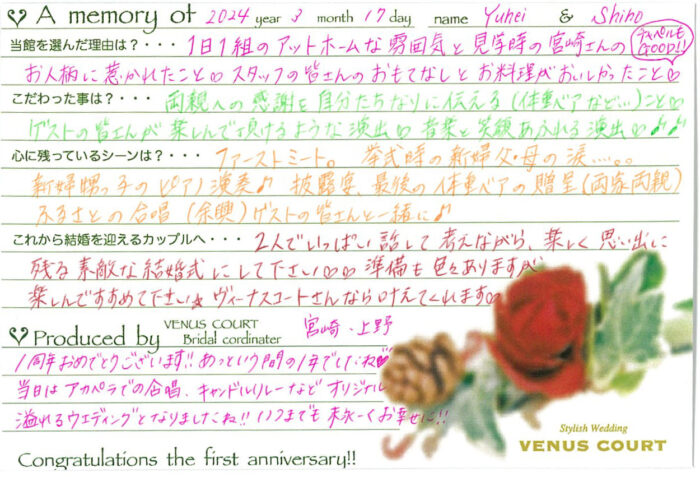 A memory of 2024 year 3 month 17 day name Yuhei & Shiho
当館を選んだ理由は？・・・ 1日1組のアットホームな雰囲気と見学時の宮崎さんの
チャペルも GOOD!!
お人柄に惹かれたこと♡ スタッフの皆さんのおもてなしとお料理がおいしかったこと♡
こだわった事は？・・・ 両親への感謝を自分たちなりに伝える(体重ベアなど…)こと♡
ゲストの皆さんが楽しんで頂けるような演出♡ 音楽と笑顔あふれる演出♡♪♪
心に残っているシーンは？・・・ ファーストミート。 挙式時の新婦父・母の涙……。。
新婦甥っ子のピアノ演奏♪ 披露宴、最後の体重ベアの贈呈(両家両親)
ふるさとの合唱(余興)ゲストの皆さんと一緒に♪
これから結婚を迎えるカップルへ・・・ 2人でいっぱい話して考えながら、楽しく思い出に
残る素敵な結婚式にして下さい♡♡ 準備も色々ありますが
楽しんですすめて下さい★ ヴィーナスコートさんなら叶えてくれます♡
Produced by VENUS COURT Bridal cordinater 宮崎・上野
1周年おめでとうございます!! あっという間の1年でしたね♥
当日はアカペラでの合唱、キャンドルリレーなど オリジナル
溢れるウエディングとなりましたね!! いつまでも末永ーくお幸せに!!
Stylish Wedding
VENUS COURT
Congratulations the first anniversary!!